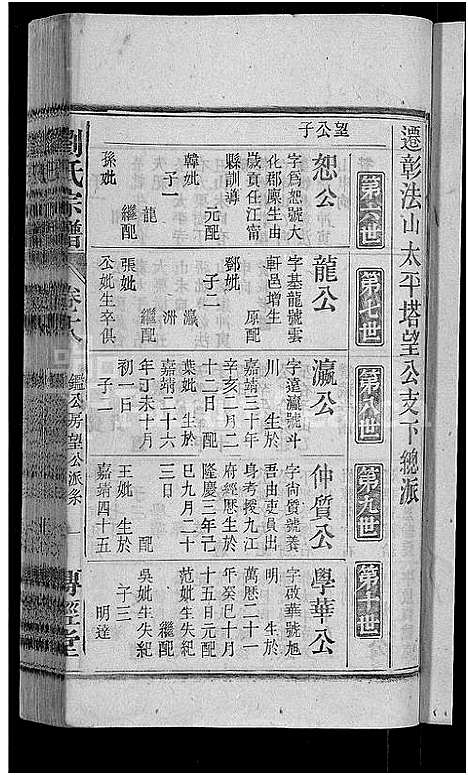 遷彰法山太平塔望公支下總派
第六世
望公子
恕公
字爲恕號大
化郡廩生由
歲貢任江甯
縣訓導
元配
韓妣
子一
龍
繼配
孫妣
第七世
龍公
字基龍號雲
軒邑增生
原配
鄧妣
子二
瀛
洲
繼配
張妣
公妣生卒俱
第八世
瀛公
字遠瀛號斗
川
生於
嘉靖三十年
辛亥二月二
十二日
配
葉妣
生於
嘉靖二十六
年丁未十月
初一日
子二
第九世
仲質公
字尚質號養
吾由吏員出
身考授九江
府經歷生於
隆慶三年己
巳九月二十
三日
配
王妣
生於
嘉靖四十五
第十世
學華公
字啟華號旭
明
生於
萬歷二十一
年癸巳十月
十五日元配
范妣生失紀
繼配
吳妣生失紀
子三
明達
劉氏宗譜
鑑公房望公派系
一
傳經堂